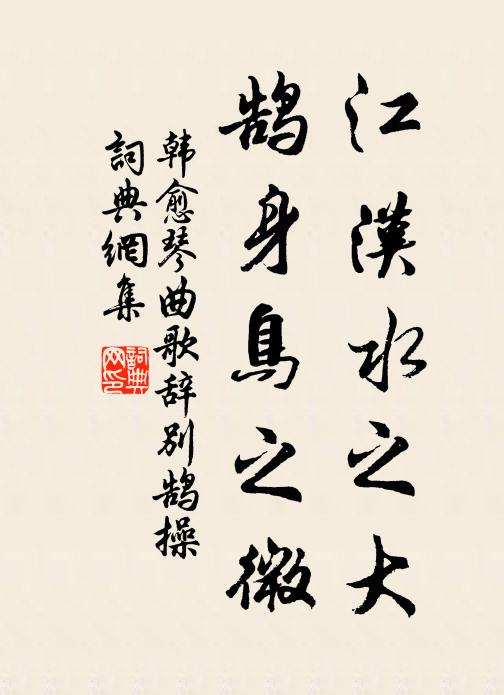 江漢水之大
鹄身鳥之微
韩愈琴曲歌辞别鹄操
詞典網集
詞典网印